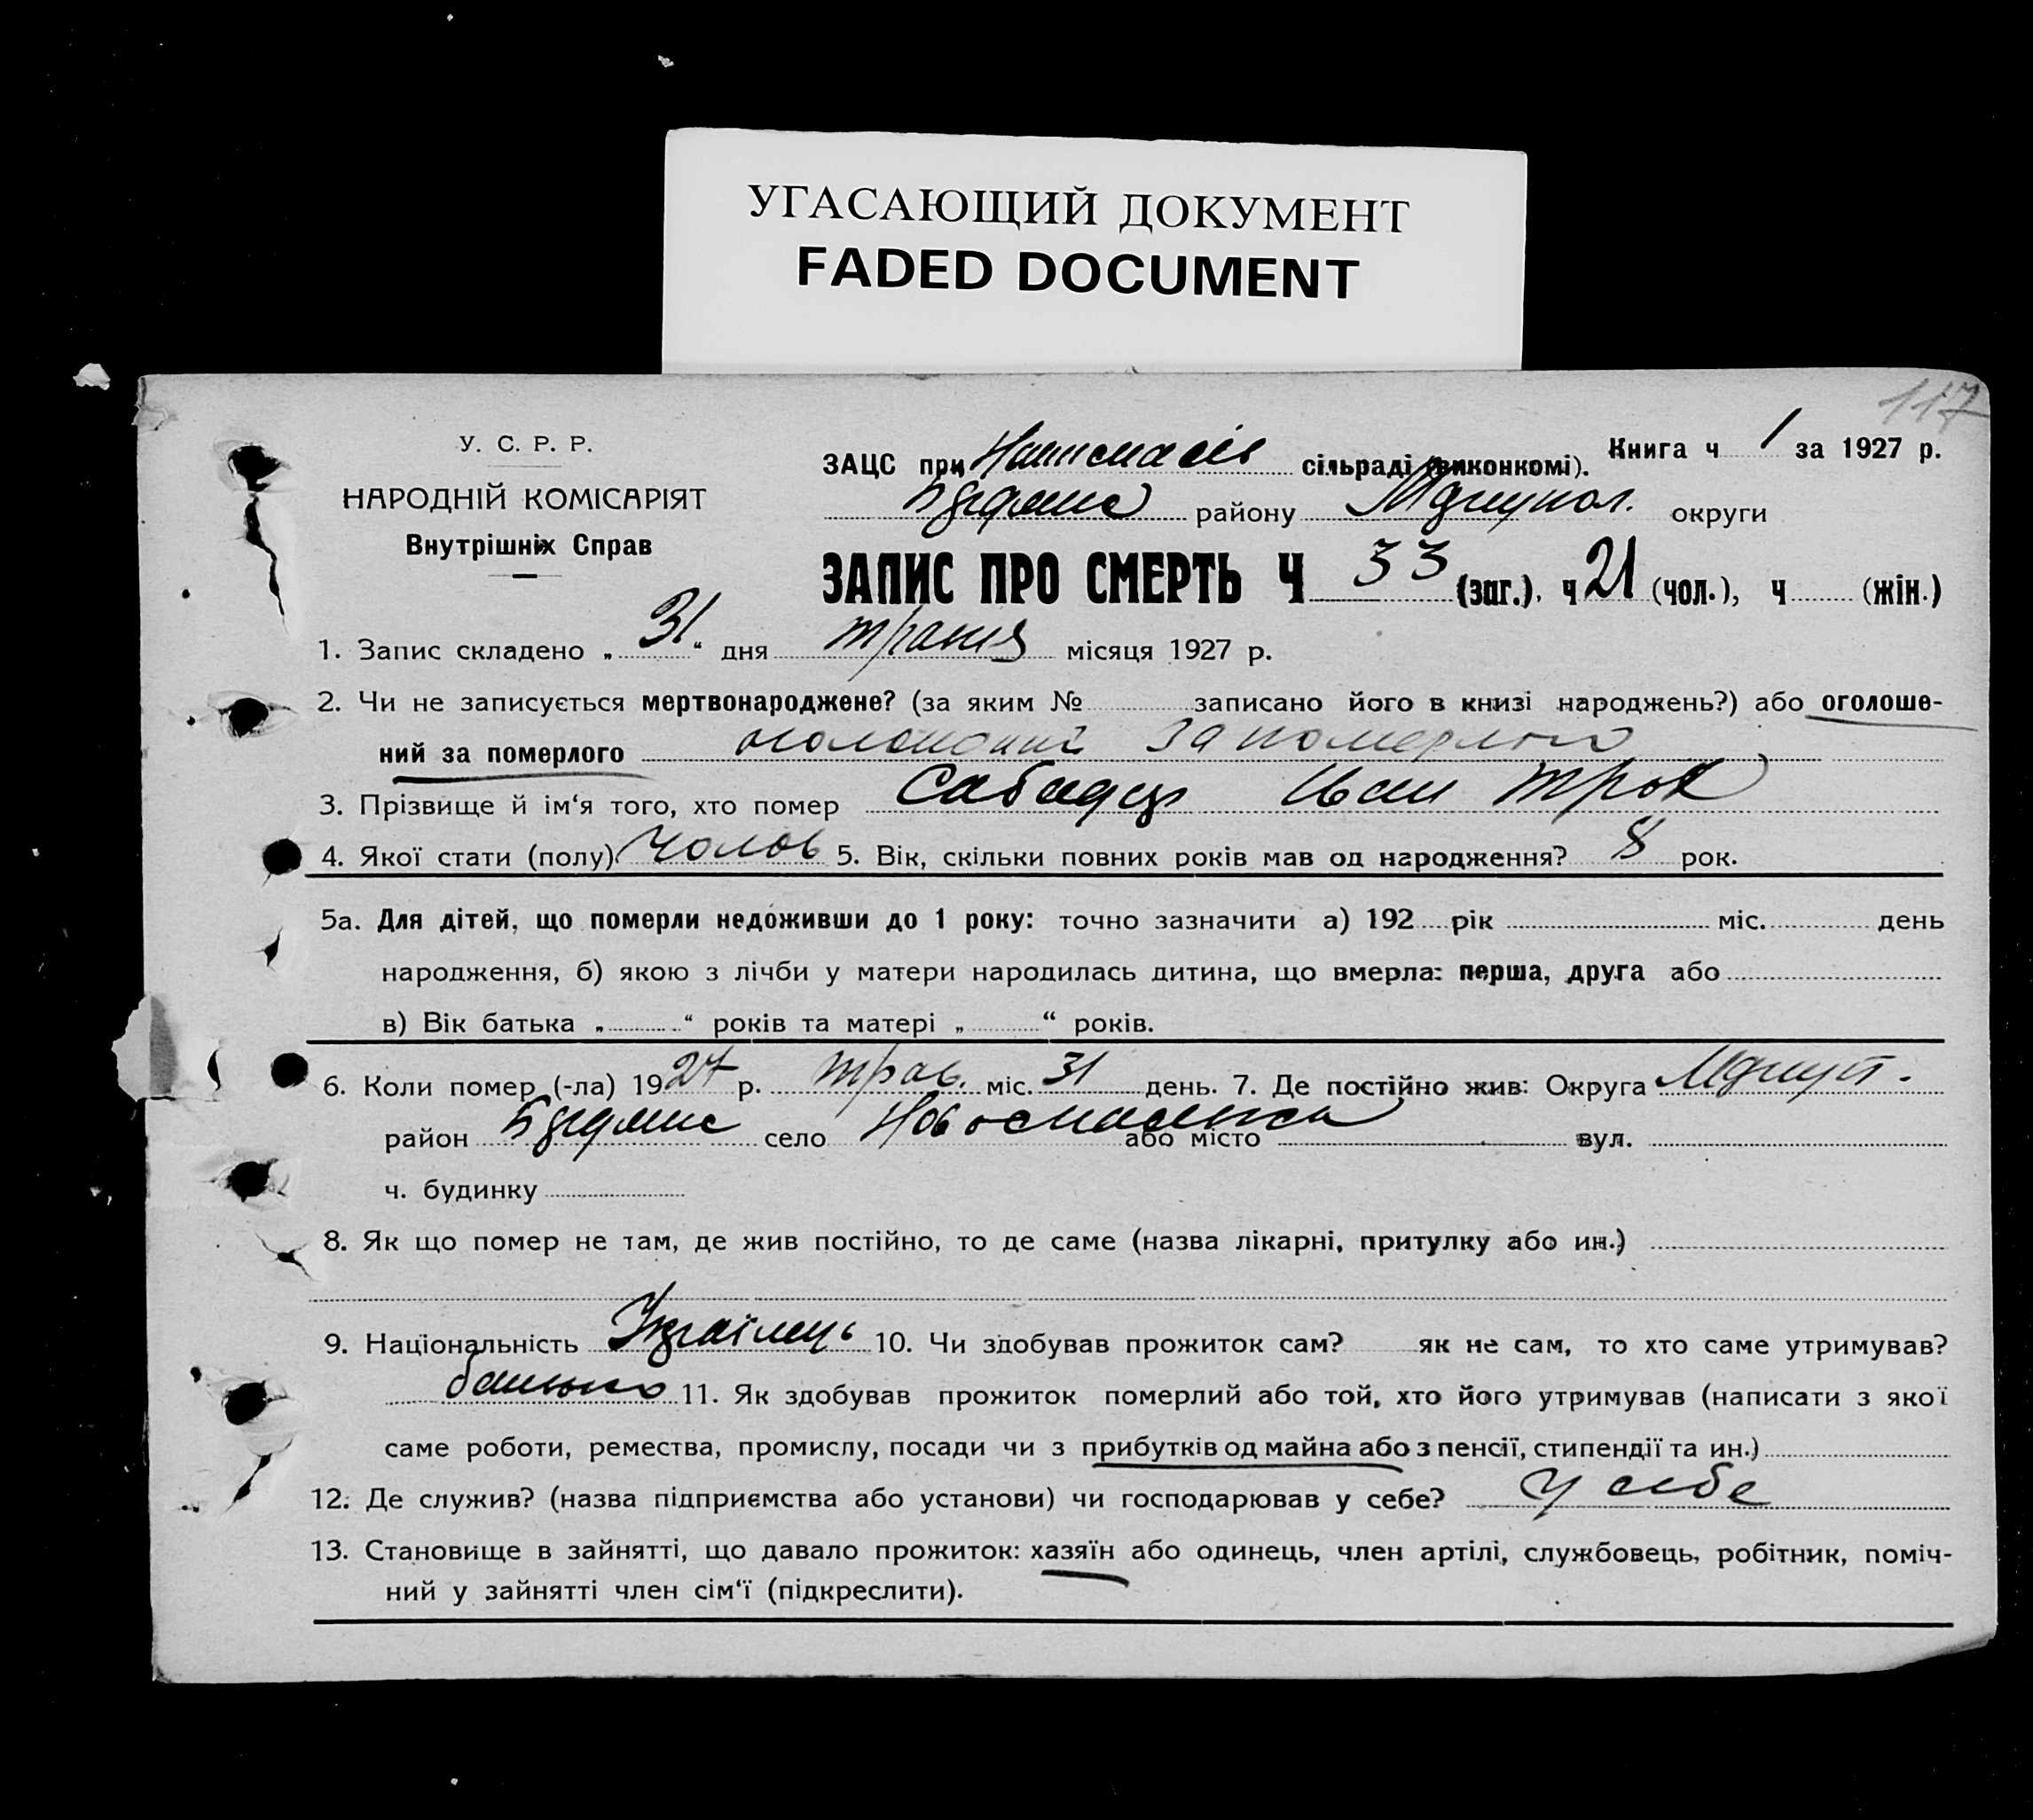 УГАСАЮЩИЙ ДОКУМЕНТ
FADED DOCUMENT
117
У. С. Р. Р.
НАРОДНІЙ КОМІСАРІЯТ
Внутрішніх Справ
Книга ч 1 за 1927 р.
ЗАЦС при сільраді (виконкомі).
району Маріупол. округи
ЗАПИС ПРО СМЕРТЬ Ч 33 (заг.), ч 21 (чол.), ч (жін.)
1. Запис складено „ 31 “ дня травня місяця 1927 р.
2. Чи не записується мертвонароджене? (за яким № записано його в книзі народжень?) або оголоше-
ний за померлого оголошений за померлого
3. Прізвище й ім‘я того, хто помер Сабадаць Іван Трох
4. Якої стати (полу) чолов 5. Вік, скільки повних років мав од народження? 8 рок.
5а. Для дітей, що померли недоживши до 1 року: точно зазначити а) 192 рік міс. день
народження, б) якою з лічби у матери народилась дитина, що вмерла: перша, друга або
в) Вік батька „ “ років та матері „ “ років.
6. Коли помер (-ла) 1927 р. трав. міс. 31 день. 7. Де постійно жив: Округа Маріуп.
район село Новоспасівка або місто вул.
ч. будинку
8. Як що помер не там, де жив постійно, то де саме (назва лікарні, притулку або ин.)
9. Національність Українець 10. Чи здобував прожиток сам? як не сам, то хто саме утримував?
батько 11. Як здобував прожиток померлий або той, хто його утримував (написати з якої
саме роботи, ремества, промислу, посади чи з прибутків од майна або з пенсії, стипендії та ин.)
12. Де служив? (назва підприємства або установи) чи господарював у себе? у себе
13. Становище в зайнятті, що давало прожиток: хазяїн або одинець, член артілі, службовець, робітник, поміч-
ний у зайнятті член сім‘ї (підкреслити).